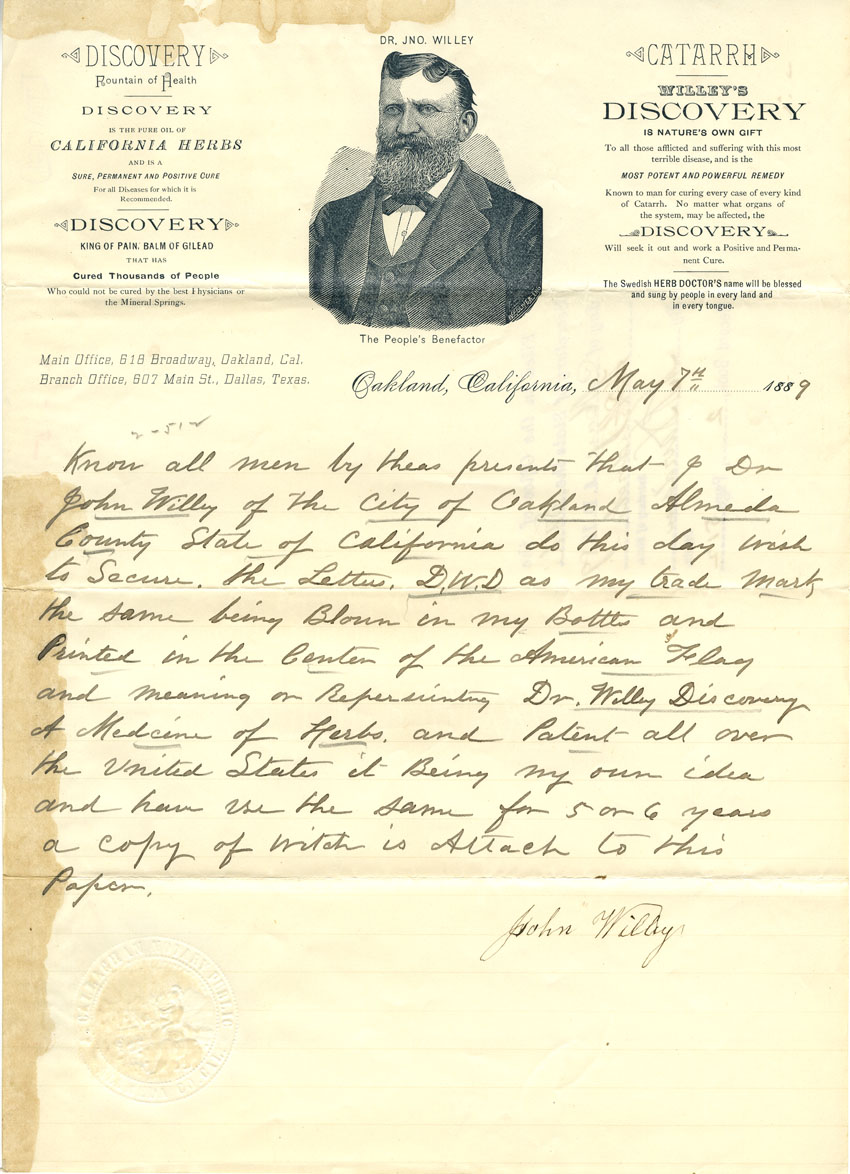 DR. JNO. WILLEY
DISCOVERY
Fountain of Health
DISCOVERY
IS THE PURE OIL OF
CALIFORNIA HERBS
AND IS A
SURE, PERMANENT AND POSITIVE CURE
For all Diseases for which it is
Recommended.
DISCOVERY
KING OF PAIN. BALM OF GILEAD
THAT HAS
Cured Thousands of People
Who could not be cured by the best Physicians or
the Mineral Springs.
The People's Benefactor
CATARRH
WILLEY'S
DISCOVERY
IS NATURE'S OWN GIFT
To all those afflicted and suffering with this most
terrible disease, and is the
MOST POTENT AND POWERFUL REMEDY
Known to man for curing every case of every kind
of Catarrh. No matter what organs of
the system, may be affected, the
DISCOVERY
Will seek it out and work a Positive and Perma-
nent Cure.
The Swedish HERB DOCTOR'S name will be blessed
and sung by people in every land and
in every tongue.
Main Office, 618 Broadway, Oakland, Cal.
Branch Office, 607 Main St., Dallas, Texas.
Oakland, California, May 7th 1889
2-512
Know all men by theas presents that I Dr
John Willey of the City of Oakland Almeda
County State of California do this day wish
to Secure. the Letters. D.W.D as my trade Mark
the same being Blown in my Bottles and
Printed in the Center of the American Flag
and meaning or Repersienting Dr. Willey Discovery
A Medcine of Herbs. and Patent all over
the United States it Being my own idea
and have use the same for 5 or 6 years
a copy of witch is Attach to this
Paper.
John Willey
NOTARY PUBLIC